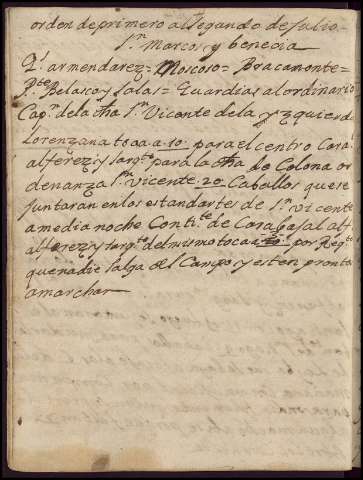 orden de primero al segundo de Julio
Sn. Marcos y benecia
Ql. armendarez = Moscoso = Bracamonte =
Belasco y Salas = Guardias al ordinario
Capn. de la cha Sn. Vicente de la yzquierda
Lorenzana toca a 10 para el centro Cara
alferez y sargto. para la cha de Colona or
denanza Sn. Vicente 20 Caballos que se
juntaran en los estandartes de Sn. Vicente
a media noche Conti.te de Carabajal alf.
alferez y sargto. del mismo toca a 20 por Regto.
que nadie salga del Campo y esten prontos
a marchar